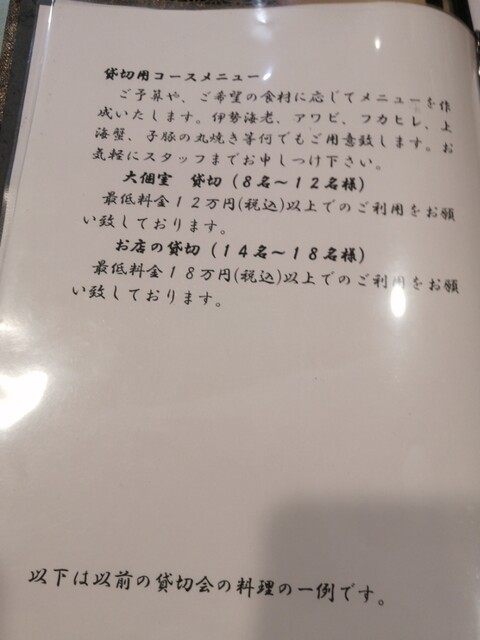 貸切用コースメニュー
ご予算や、ご希望の食材に応じてメニューを作
成いたします。伊勢海老、アワビ、フカヒレ、上
海蟹、子豚の丸焼き等何でもご用意致します。お
気軽にスタッフまでお申しつけ下さい。
大個室　貸切（８名〜１２名様）
最低料金１２万円(税込)以上でのご利用をお願
い致しております。
お店の貸切（１４名〜１８名様）
最低料金１８万円(税込)以上でのご利用をお願
い致しております。
以下は以前の貸切会の料理の一例です。